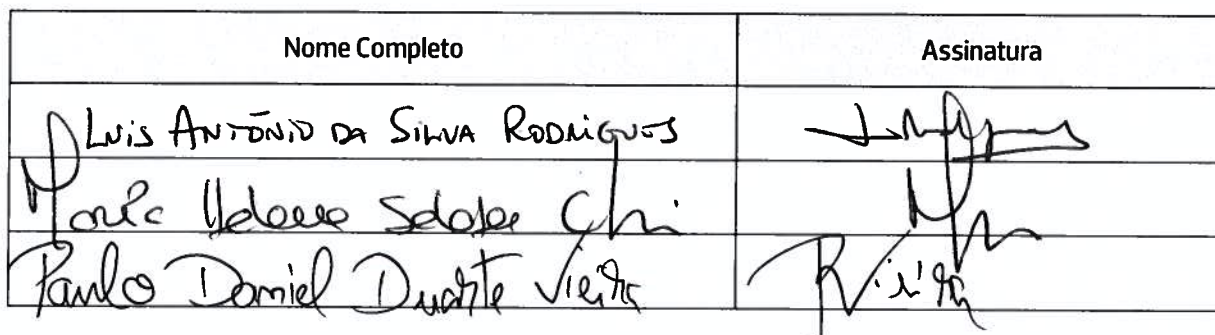 Nome Completo Assinatura
Luis António da Silva Rodrigues
Maria Helena
Paulo Daniel Duarte Vieira PVieira